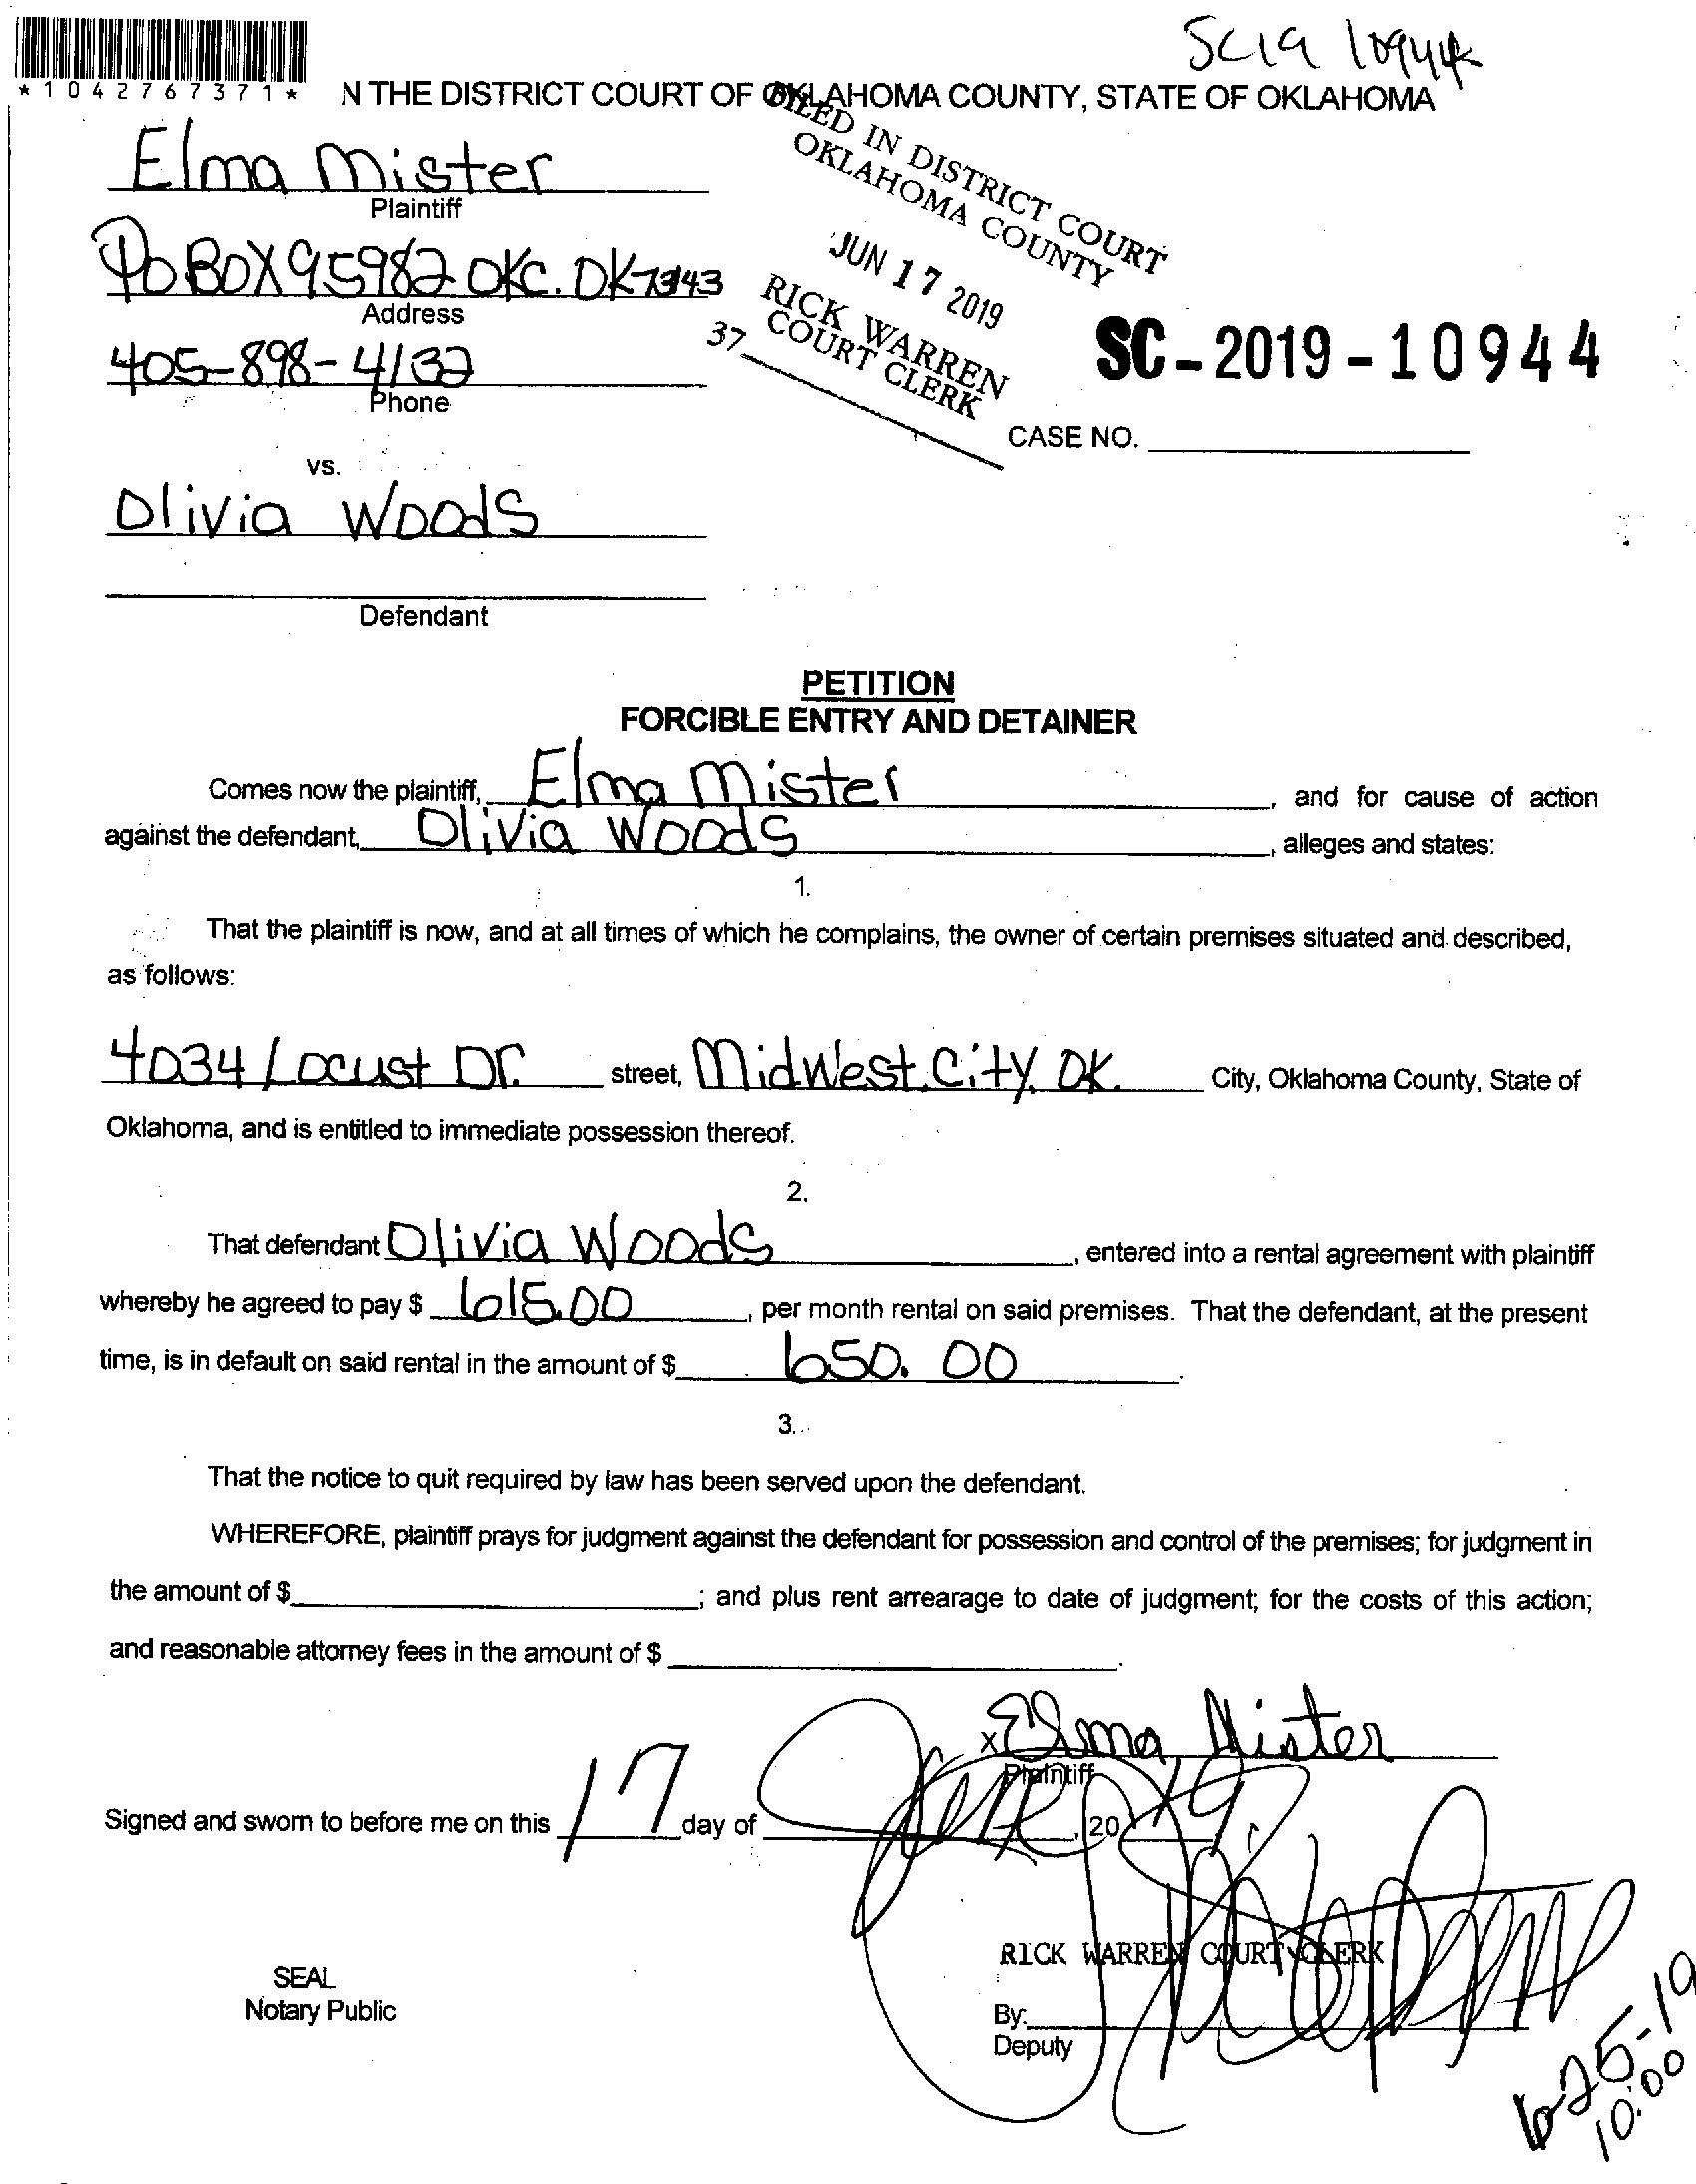 SC19 10944
*1042767371*
N THE DISTRICT COURT OF OKLAHOMA COUNTY, STATE OF OKLAHOMA
FILED IN DISTRICT COURT
OKLAHOMA COUNTY
JUN 17 2019
RICK WARREN
COURT CLERK
37
Elma Mister
Plaintiff
PO BOX 95982 OKC. OK
Address
405-898-4132
Phone
SC-2019-10944
CASE NO.
vs.
Olivia Woods
Defendant
PETITION
FORCIBLE ENTRY AND DETAINER
Comes now the plaintiff, Elma Mister, and for cause of action
against the defendant, Olivia Woods, alleges and states:
1.
That the plaintiff is now, and at all times of which he complains, the owner of certain premises situated and described,
as follows:
4034 Locust Dr. street, Midwest City, OK. City, Oklahoma County, State of
Oklahoma, and is entitled to immediate possession thereof.
2.
That defendant Olivia Woods, entered into a rental agreement with plaintiff
whereby he agreed to pay $ 615.00, per month rental on said premises. That the defendant, at the present
time, is in default on said rental in the amount of $ 650.00.
3.
That the notice to quit required by law has been served upon the defendant.
WHEREFORE, plaintiff prays for judgment against the defendant for possession and control of the premises; for judgment in
the amount of $ ; and plus rent arrearage to date of judgment; for the costs of this action;
and reasonable attorney fees in the amount of $ .
x Elma Mister
Plaintiff
Signed and sworn to before me on this 17 day of June, 20 19
RICK WARREN COURT CLERK
SEAL
Notary Public
By:
Deputy
6-25-19
10:00